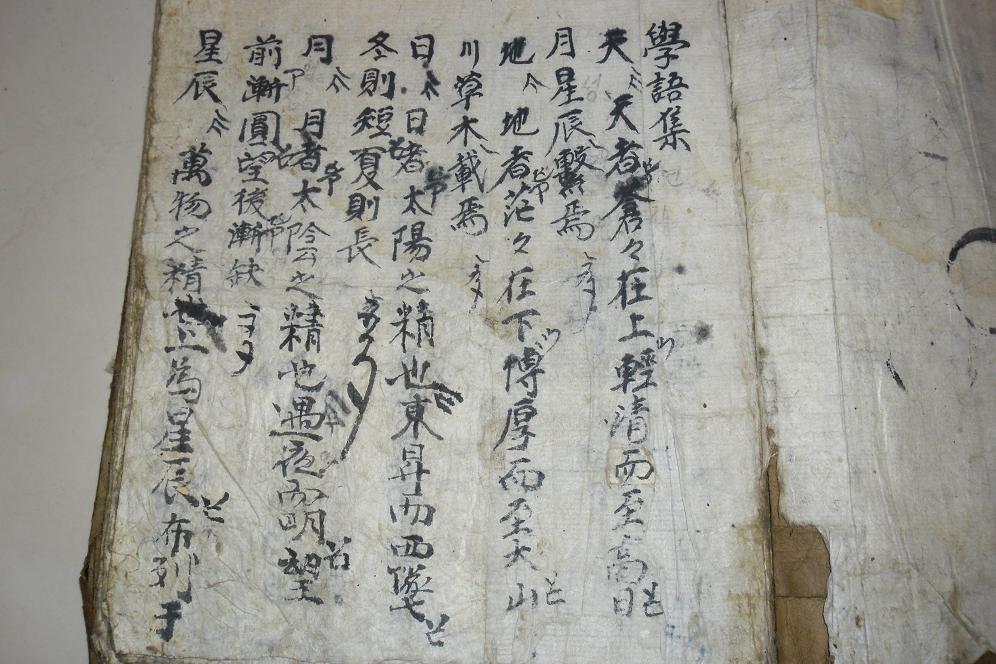 學語集
天 天者蒼々在上輕淸而至高日
月星辰繫焉
地 地者茫々在下博厚而至大山
川草木載焉
日 日者太陽之精也東昇而西墜
冬則短夏則長
月 月者太陰之精也遇夜而明望
前漸圓望後漸缺
星辰 萬物之精上爲星辰布列于